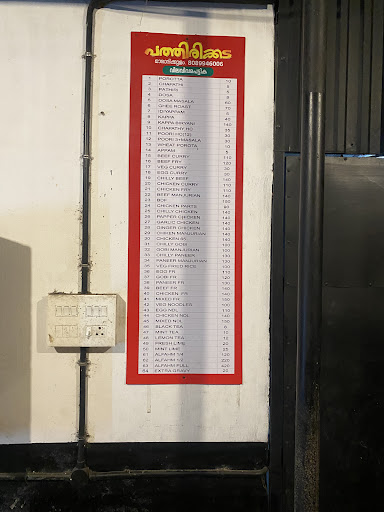 പത്തിരിക്കട
മാമാങ്കുളം 8089946006
വിലവിവരപട്ടിക
1 POROTTA 10
2 CHAPATHI
3 PATHIRI
4 DOSA
5 DOSA MASALA 60
6 GHEE ROAST 70
7 IDIYAPPAM
8 KAPPA 40
9 KAPPA BIRYANI 140
10 CHAPATHY
11 POORI
12 POORI
13 WHEAT POROTA 10
14 APPAM
15 BEEF CURRY 110
16 BEEF FRY 120
17 VEG CURRY 30
18 EGG CURRY 30
19 CHILLY BEEF 130
20 CHICKEN CURRY 110
21 CHICKEN FRY 110
22 BEEF MANJURIAN 140
23 BDF 150
24 CHICKEN PARTS 90
25 CHILLY CHICKEN 140
26 PAPPER CHICKEN 140
27 GARLIC CHICKEN 140
28 GINGER CHICKEN 140
29 CHIKEN MANJURIAN 140
30 CHICKEN 65 140
31 CHILLY GOBI 130
32 GOBI MANJURIAN 130
33 CHILLY PANEER 130
34 PANEER MANJURIAN 130
35 VEG FRIED RICE 100
36 EGG FR 110
37 GOBI FR 120
38 PANEER FR 130
39 BEEF FR 140
40 CHICKEN FR 140
41 MIXED FR 150
42 VEG NOODLES 100
43 EGG NDL 110
44 CHICKEN NDL 140
45 MIXED NDL 150
46 BLACK TEA
47 MINT TEA 10
48 LEMON TEA 10
49 FRESH LIME 20
50 MINT LIME 25
51 ALFAHM 1/4 120
52 ALFAHM 1/2 220
53 ALFAHM FULL 420
54 EXTRA GRAVY 20